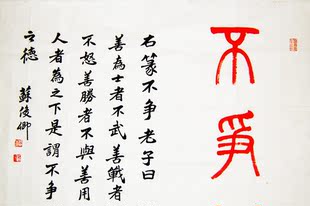 不爭
右篆不争老子曰
善為士者不武善戰者
不怒善勝者不與善用
人者為之下是謂不争
之德
蘇卿